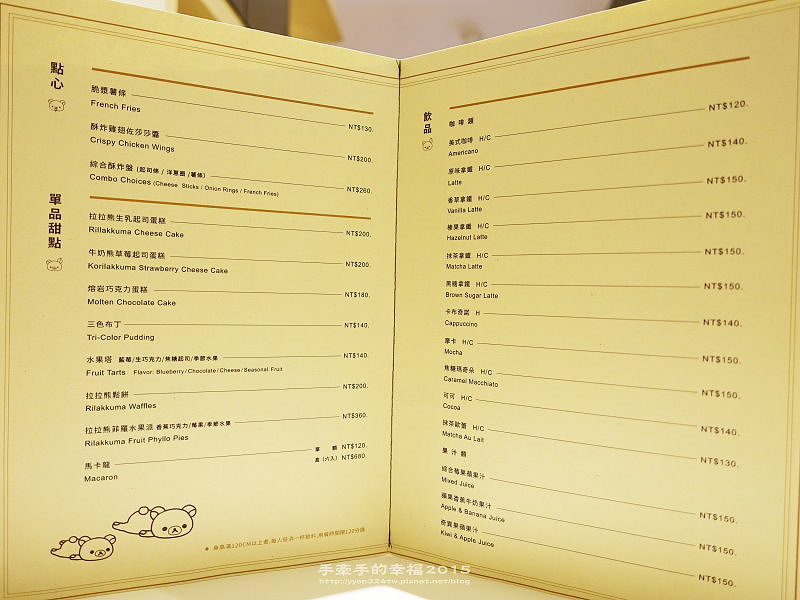 點心
脆漿薯條
French Fries
NT$130.
酥炸雞翅佐莎莎醬
Crispy Chicken Wings
NT$200.
綜合酥炸盤 (起司條 / 洋蔥圈 / 薯條)
Combo Choices (Cheese Sticks / Onion Rings / French Fries)
NT$260.
單品甜點
拉拉熊生乳起司蛋糕
Rillakkuma Cheese Cake
NT$200.
牛奶熊草莓起司蛋糕
Korilakkuma Strawberry Cheese Cake
NT$200.
熔岩巧克力蛋糕
Molten Chocolate Cake
NT$180.
三色布丁
Tri-Color Pudding
NT$140.
水果塔 藍莓/生巧克力/焦糖起司/季節水果
Fruit Tarts Flavor: Blueberry/Chocolate/Cheese/Seasonal Fruit
NT$140.
拉拉熊鬆餅
Rilakkuma Waffles
NT$200.
拉拉熊菲羅水果派 香蕉巧克力/莓果/季節水果
Rilakkuma Fruit Phyllo Pies
NT$360.
馬卡龍
Macaron
單顆 NT$120.
盒(六入) NT$680.
身高滿120CM以上者,每人低消一杯飲料,用餐時間限120分鐘
飲品
咖啡類
美式咖啡 H/C
Americano
NT$120.
原味拿鐵 H/C
Latte
NT$140.
香草拿鐵 H/C
Vanilla Latte
NT$150.
榛果拿鐵 H/C
Hazelnut Latte
NT$150.
抹茶拿鐵 H/C
Matcha Latte
NT$150.
黑糖拿鐵 H/C
Brown Sugar Latte
NT$150.
卡布奇諾 H
Cappuccino
NT$140.
摩卡 H/C
Mocha
NT$150.
焦糖瑪奇朵 H/C
Caramel Macchiato
NT$150.
可可 H/C
Cocoa
NT$140.
抹茶歐蕾 H/C
Matcha Au Lait
NT$130.
果汁類
綜合莓果蘋果汁
Mixed Juice
NT$150.
蘋果香蕉牛奶果汁
Apple & Banana Juice
NT$150.
奇異果蘋果汁
Kiwi & Apple Juice
NT$150.
手牽手的幸福2015
http://yyen324tw.pixnet.net/blog